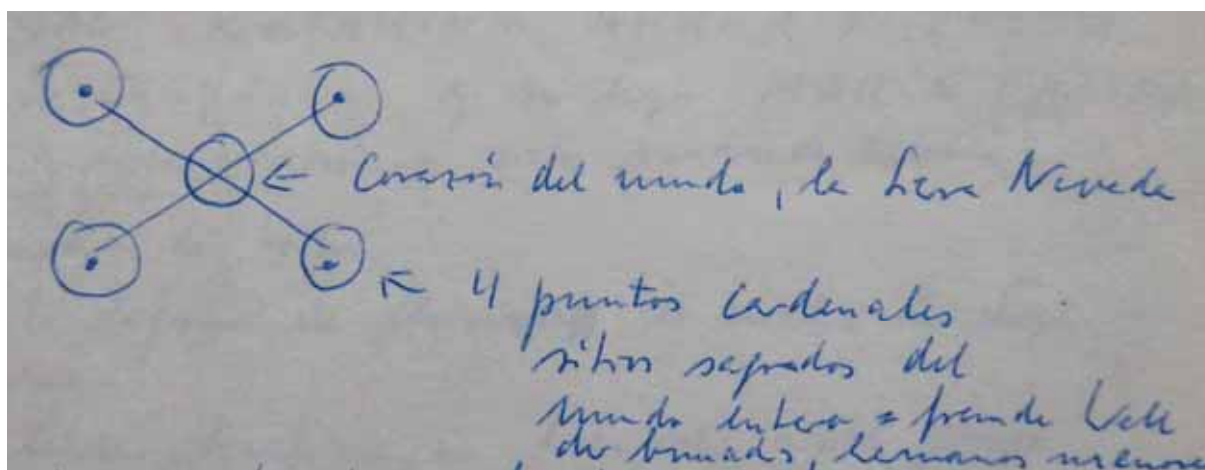 ← Corazón del mundo, la Sierra Nevada
← 4 puntos cardenales
sitios sagrados del
mundo entero = fremde Welt
der bunachi, hermanos menores